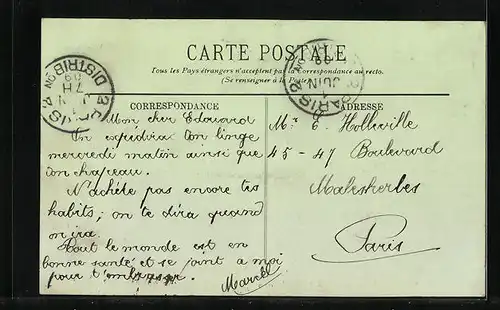 CARTE POSTALE
Tous les Pays étrangers n'acceptent pas la correspondance au recto.
(Se renseigner à la Poste)
DISTRIBON
7H
09
PARIS
JUIN
09
CORRESPONDANCE
Mon cher Edouard
On expédira ton linge
mercredi matin ainsi que
ton chapeau.
N'achète pas encore tes
habits; on te dira quand
on ira.
Tout le monde est en
bonne santé et se joint à moi
pour t'embrasser.
Marcel
ADRESSE
Mr E. Holleville
45-47 Boulevard
Malesherbes
Paris